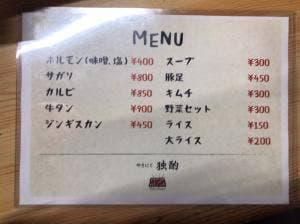 MENU
ホルモン(味噌、塩) ¥400
サガリ ¥800
カルビ ¥850
牛タン ¥900
ジンギスカン ¥450
スープ ¥300
豚足 ¥450
キムチ ¥300
野菜セット ¥300
ライス ¥150
大ライス ¥200
やきにく 独酌